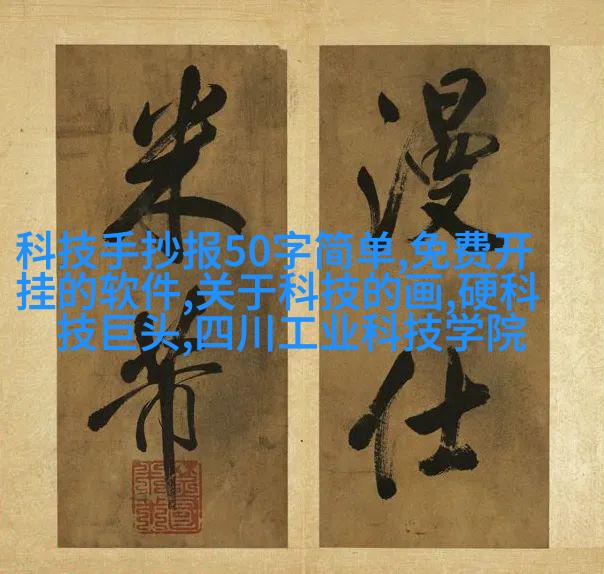 漫仕
米芾
科技手抄报50字简单,免费开
挂的软件,关于科技的画,硬科
技巨头,四川工业科技学院